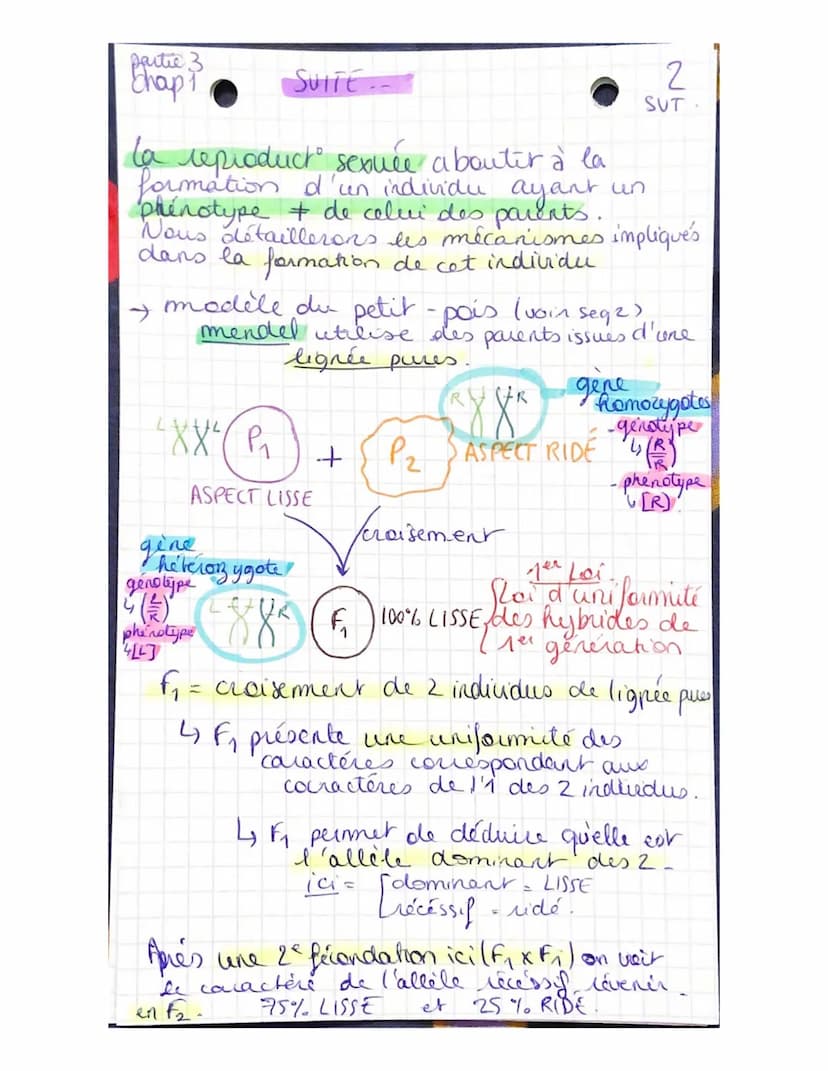 partie 3
Chap 1
SUITE...
2
SVT.
La reproduct° sexuée aboutir à la
formation d'un individu ayant un
phénotype ≠ de celui des parents.
Nous détaillerons les mécanismes impliqués
dans la formation de cet individu
→ modèle du petit-pois (voir seq 2)
mendel utilise des parents issues d'une
lignée pures.
L L P1 + P2 R R
ASPECT LISSE
ASPECT RIDÉ
gène
homozygotes
- génotype
↳ (R/R)
- phénotype
↳ [R]
croisement
gène
hétérozygote
génotype
↳ (L/R)
phénotype
↳ [L]
L R
F1
100% LISSE
1er Loi
Loi d'uniformité
des hybrides de
1er génération
F1 = croisement de 2 individus de lignée pures
↳ F1 présente une uniformité des
caractéres correspondant aux
caractéres de l'1 des 2 individus.
↳ F1 permet de déduire qu'elle est
l'allèle dominant des 2 -
ici = dominant = LISSE
récéssif = ridé.
Après une 2e fécondation ici (F1 x F1) on voit
le caractéré de l'allèle récéssif révenir
en F2. 75% LISSE et 25% RIDÉ.